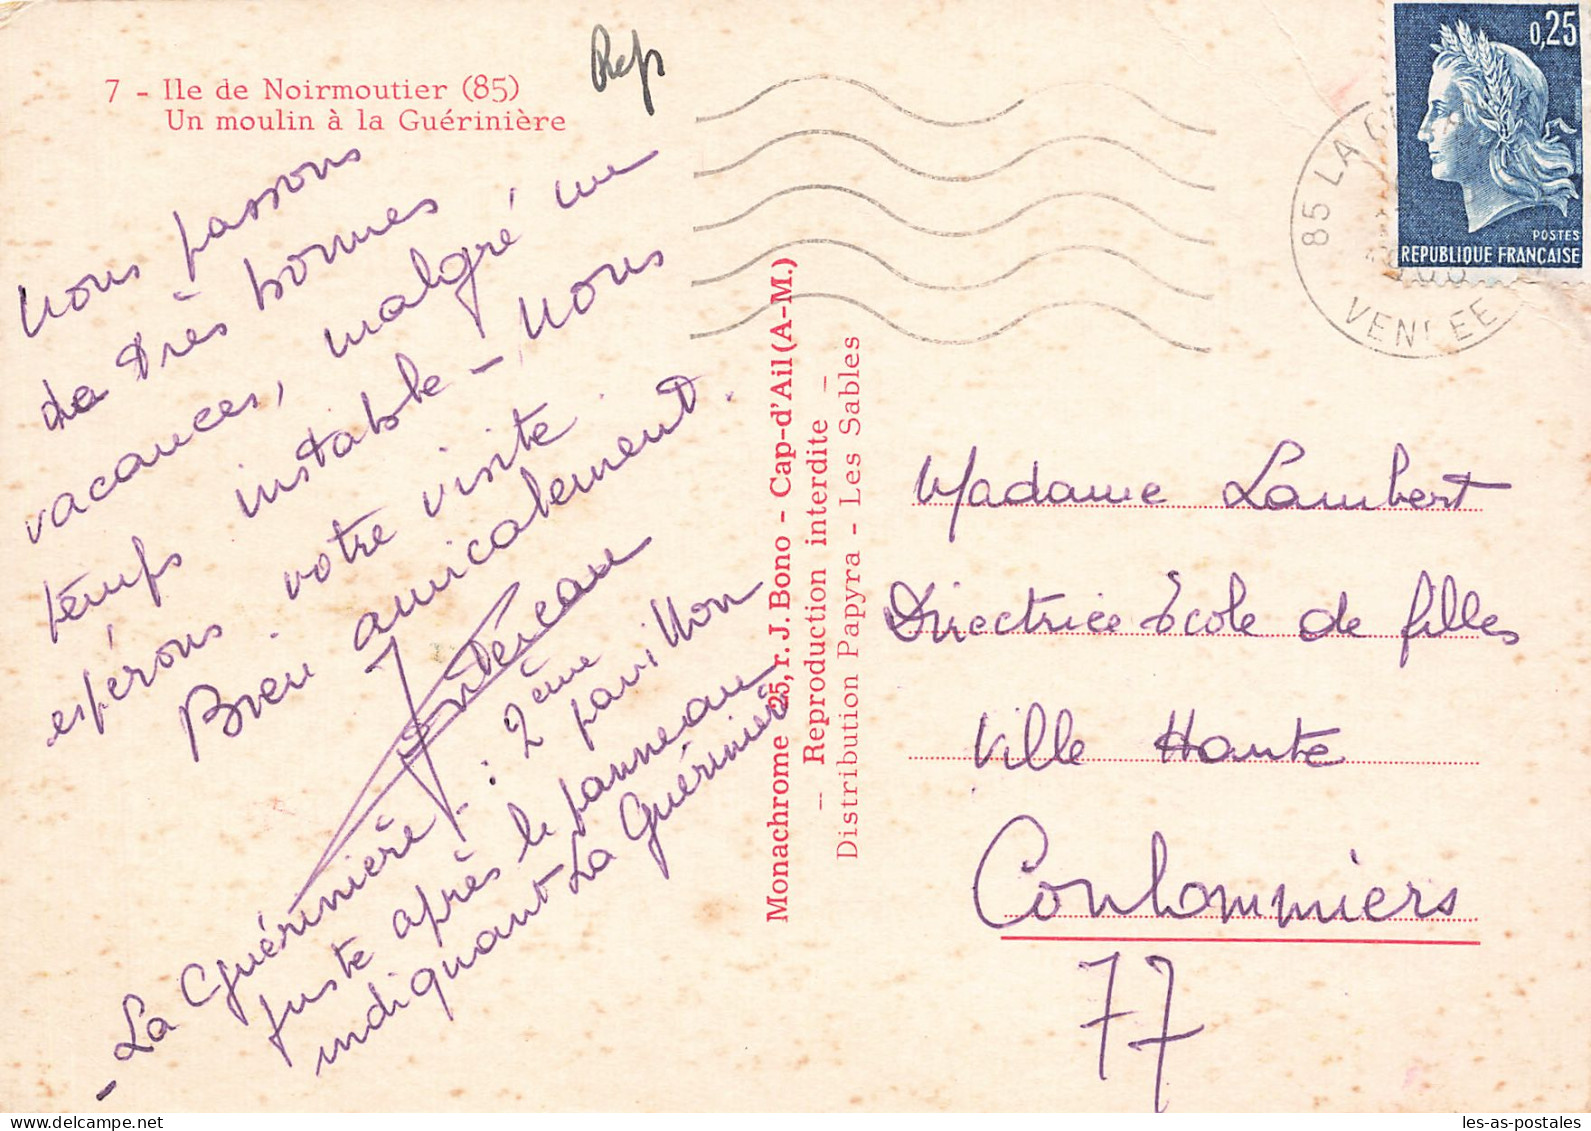 7 - Ile de Noirmoutier (85)
Un moulin à la Guérinière
Rep
Nous passons
de très bonnes
vacances, malgré un
temps instable - Nous
espérons votre visite.
Bien amicalement.
- La Guérinière : 2ème pavillon
juste après le panneau
indiquant La Guérinière
Monachrome 25, r. J. Bono - Cap-d'Ail (A-M.)
— Reproduction interdite —
Distribution Papyra - Les Sables
0,25
POSTES
REPUBLIQUE FRANÇAISE
85 LA
VENDEE
Madame Lambert
Directrice École de filles
Ville Haute
Coulommiers
77
les-as-postales